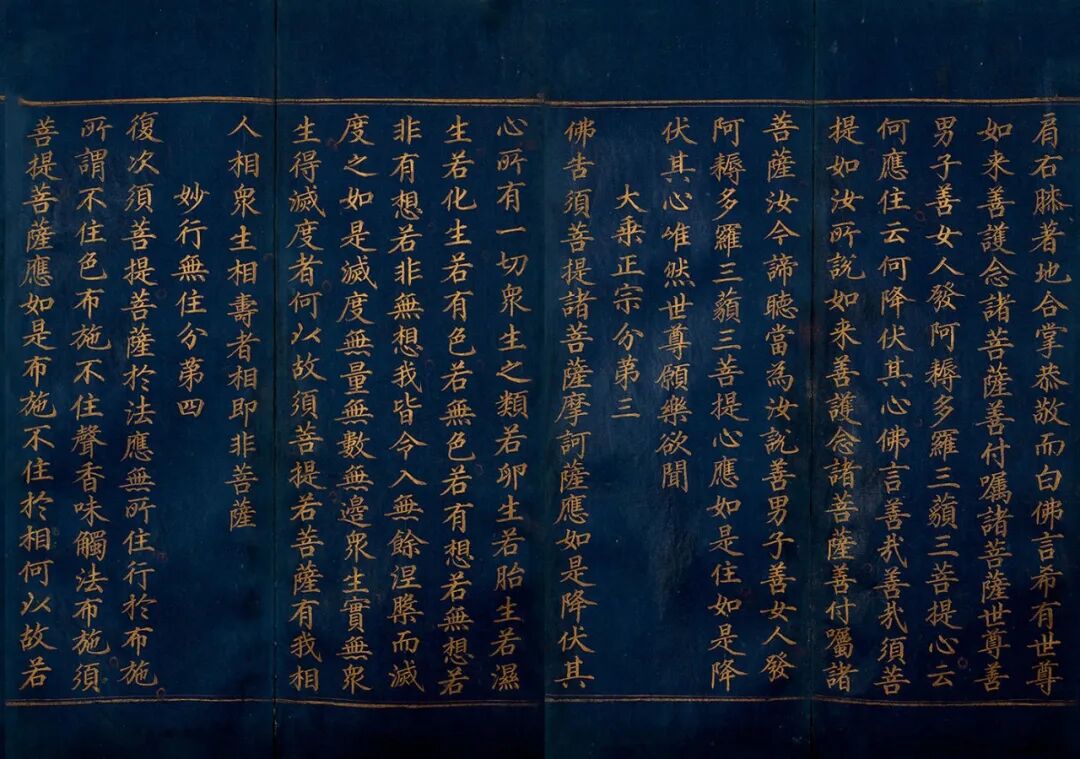 肩右膝著地合掌恭敬而白佛言希有世尊
如来善護念諸菩薩善付囑諸菩薩世尊善
男子善女人發阿耨多羅三藐三菩提心云
何應住云何降伏其心佛言善哉善哉須菩
提如汝所說如来善護念諸菩薩善付囑諸
菩薩汝今諦聽當為汝說善男子善女人發
阿耨多羅三藐三菩提心應如是住如是降
伏其心唯然世尊願樂欲聞
大乗正宗分第三
佛告須菩提諸菩薩摩訶薩應如是降伏其
心所有一切衆生之類若卵生若胎生若濕
生若化生若有色若無色若有想若無想若
非有想若非無想我皆令入無餘涅槃而滅
度之如是滅度無量無數無邊衆生實無衆
生得滅度者何以故須菩提若菩薩有我相
人相衆生相壽者相即非菩薩
妙行無住分第四
復次須菩提菩薩於法應無所住行於布施
所謂不住色布施不住聲香味觸法布施須
菩提菩薩應如是布施不住於相何以故若